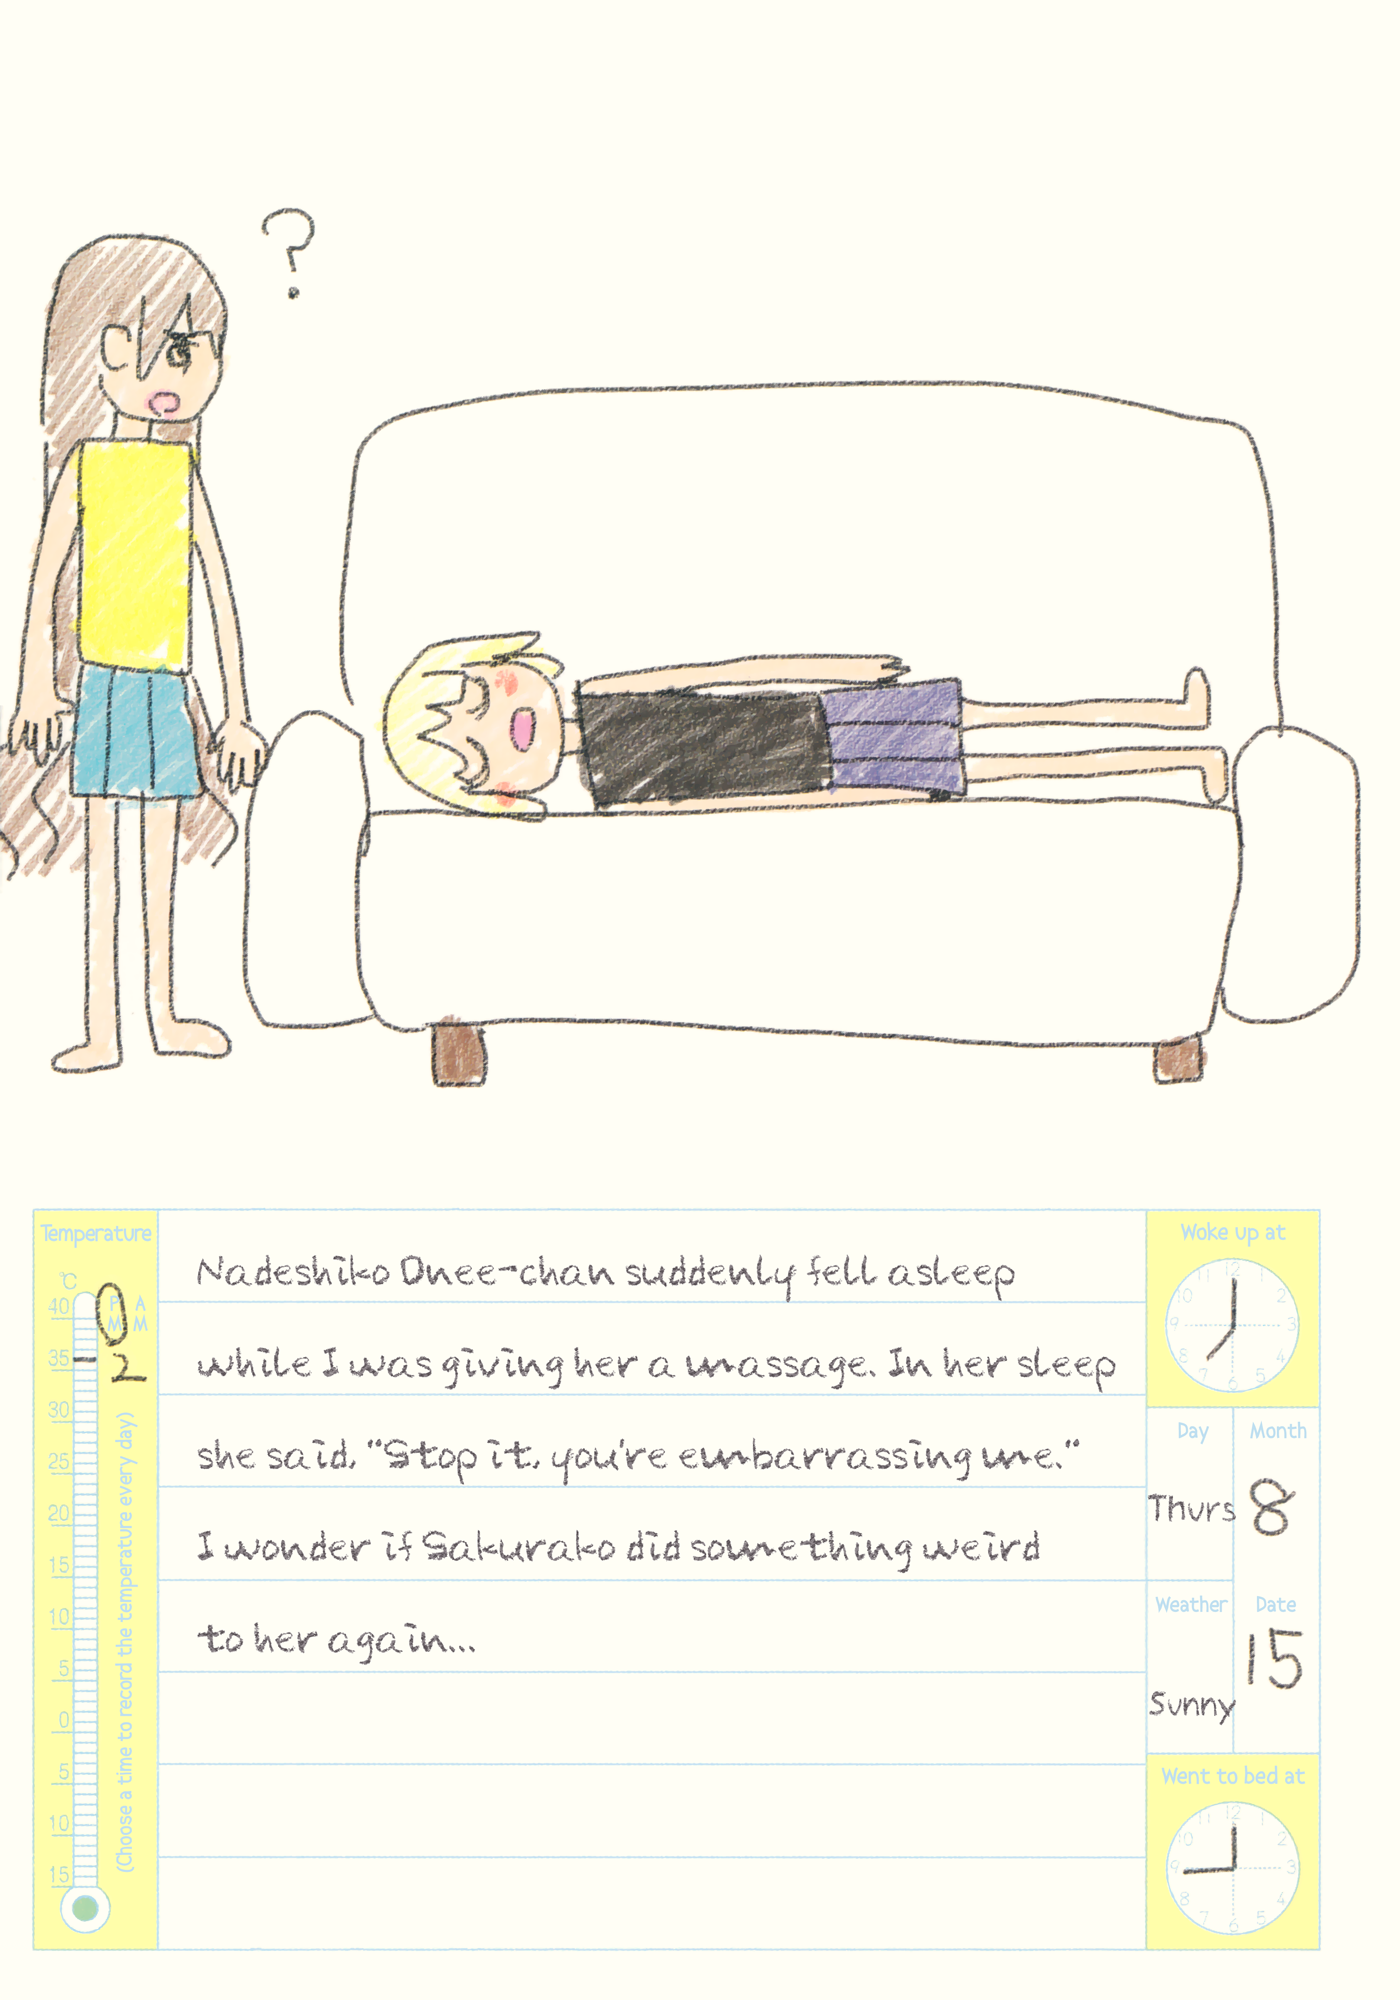 ?
Temperature
℃
40
35
30
25
20
15
10
5
0
5
10
15
PM AM
2
(Choose a time to record the temperature every day)
Nadeshiko Onee-chan suddenly fell asleep
while I was giving her a massage. In her sleep
she said, "Stop it, you're embarrassing me."
I wonder if Sakurako did something weird
to her again...
Woke up at
12 1 2 3 4 5 6 7 8 9 10 11
Day Month
Thurs 8
Weather Date
Sunny 15
Went to bed at
12 1 2 3 4 5 6 7 8 9 10 11